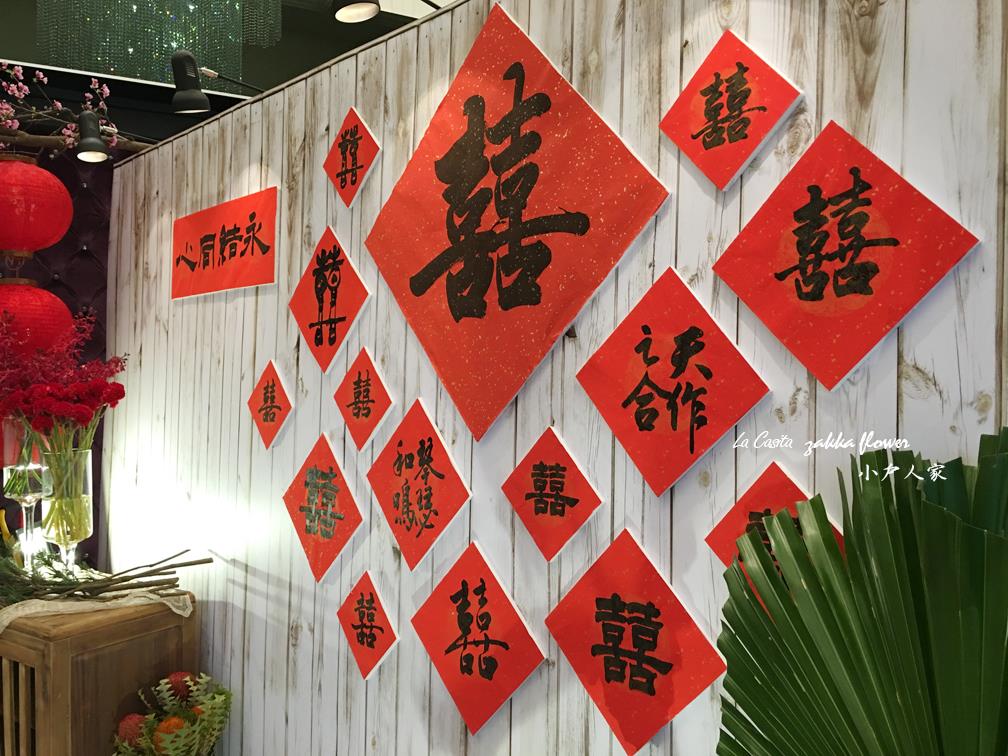 永結同心
囍
囍
囍
囍
囍
囍
囍
天作
之合
囍
琴瑟
和鳴
囍
囍
囍
囍
囍
La Casita zakka flower
小戶人家